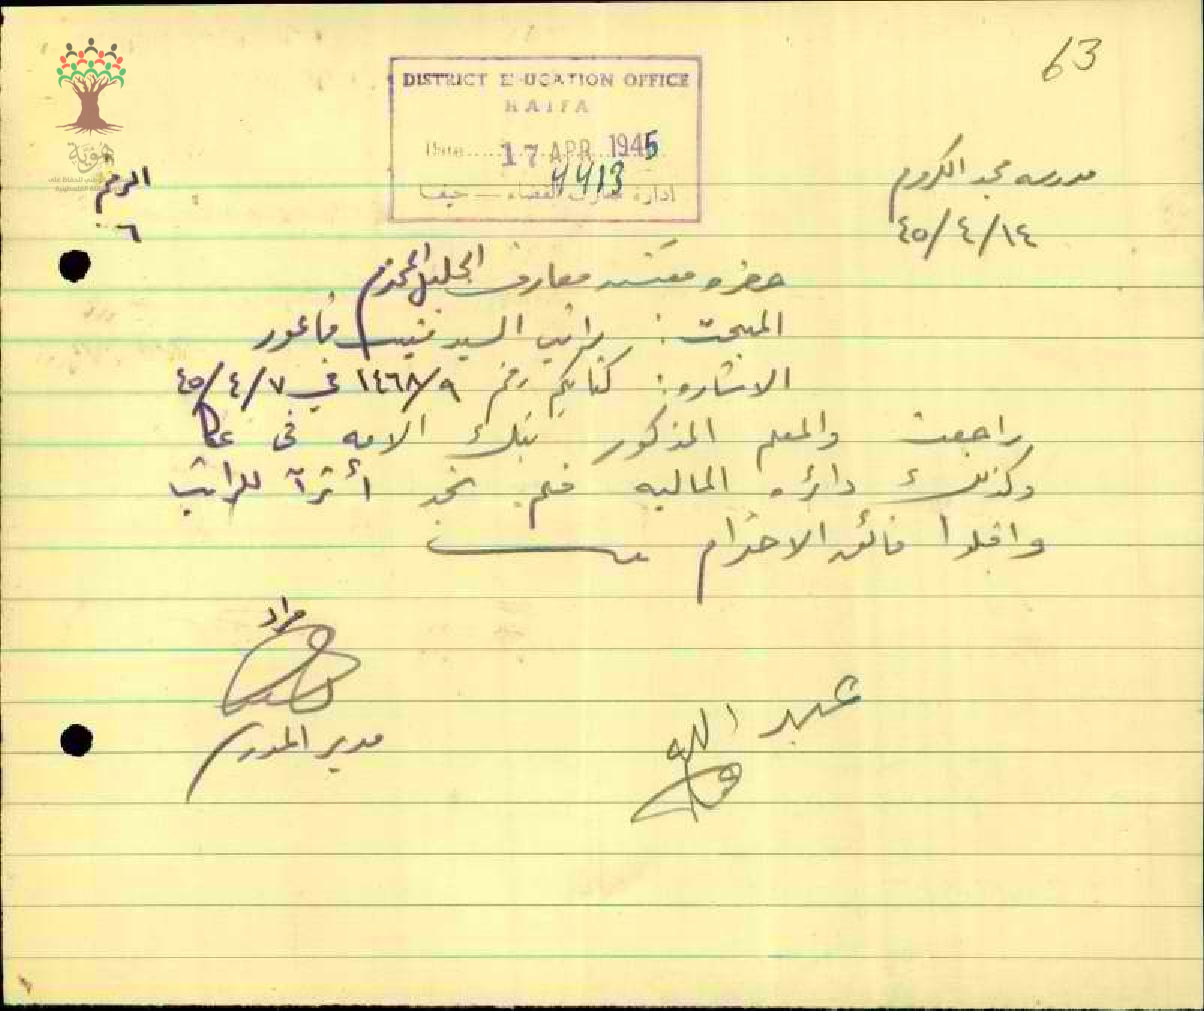 63
DISTRICT EDUCATION OFFICE
HAIFA
Date.....17 APR 1945
4413
ادارة معارف القضاء — حيفا
هوية
مدرسه مجد الكروم
٤٥/٤/١٤
الرقم
٦
حضره مفتش معارف الجليل المحترم
المبحث: راتب السيد فاعور
الاشاره: كتابكم رقم ١٤٦٨/٩ في ٤٥/٤/٧
راجعت والمعلم المذكور بنك الامه في عكا
وكذلك دائره الماليه فلم نجد أثرآ للراتب
واقبلوا فائق الاحترام
مدير المدرسه
عبد الله